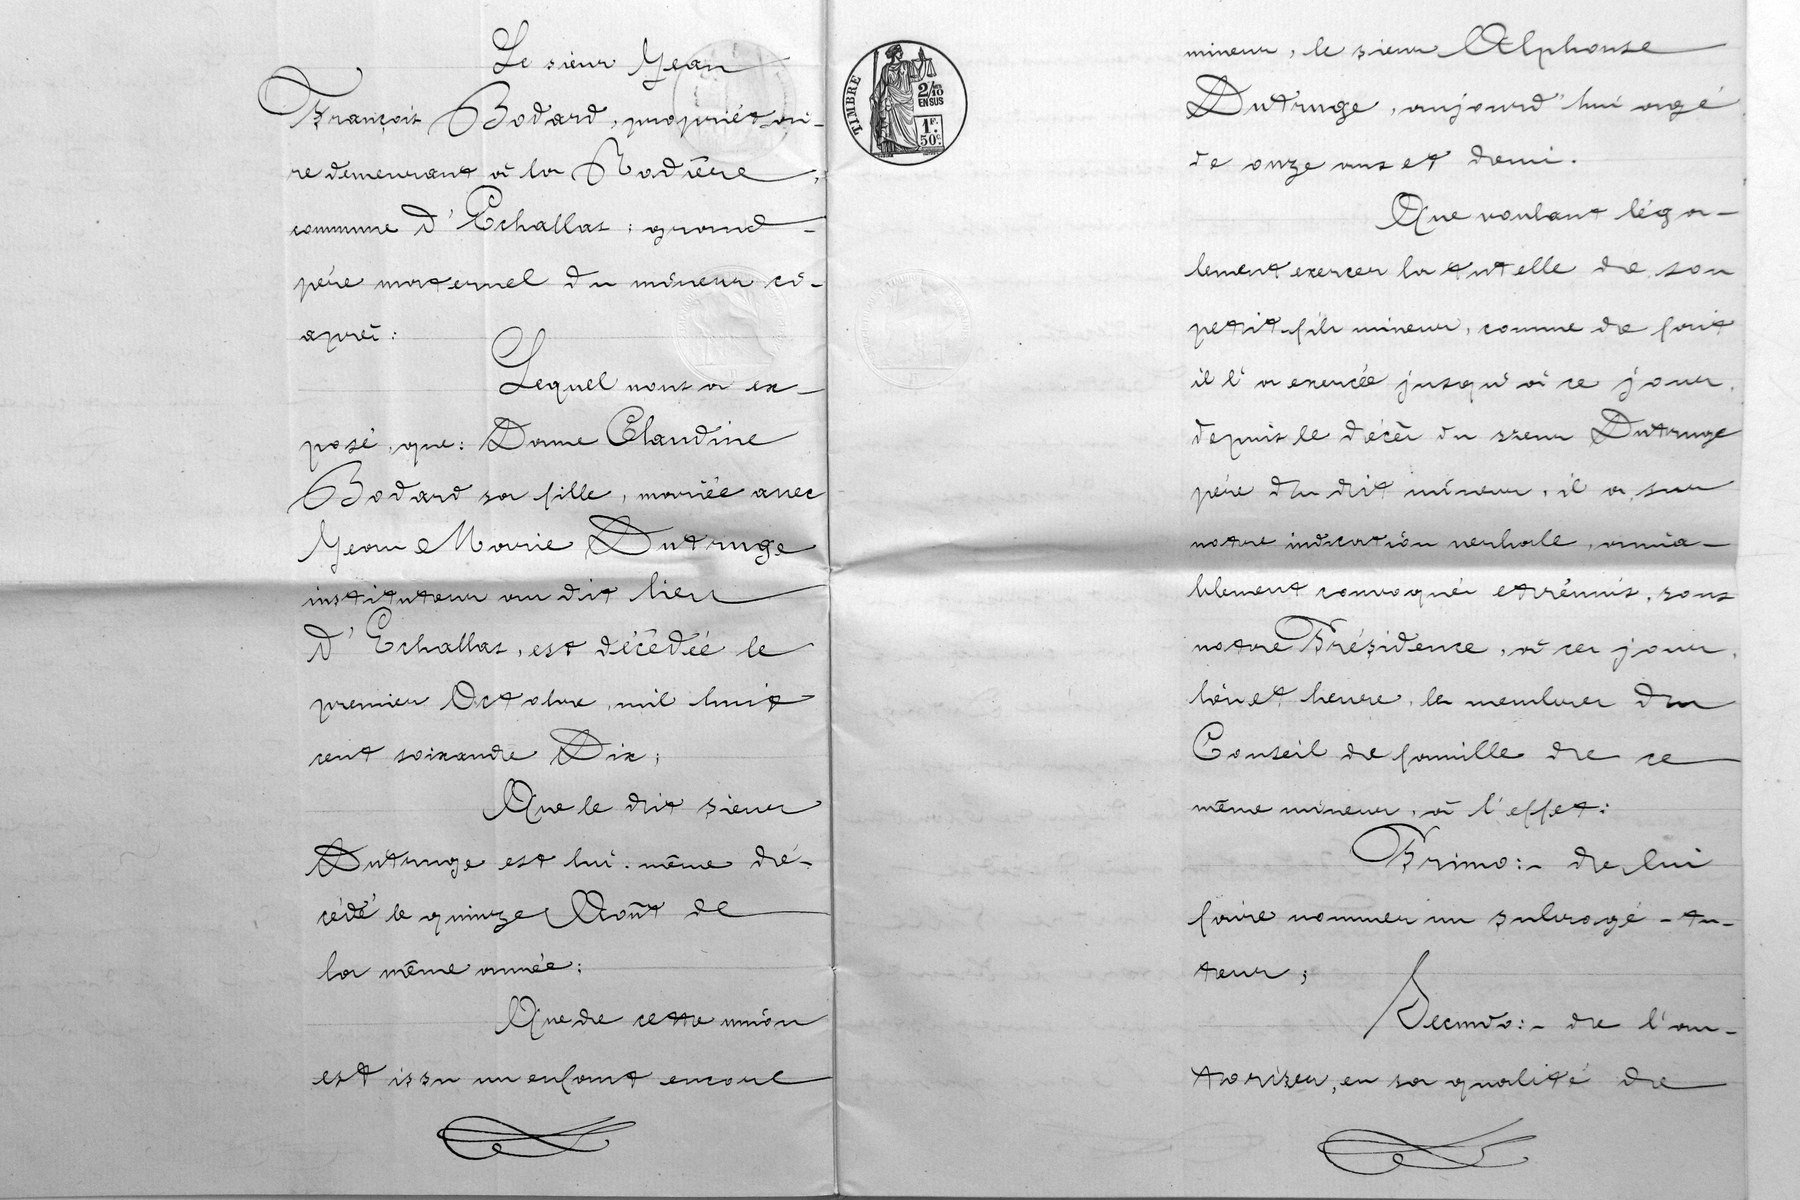 Le sieur Jean
François Bodard, propriétai-
re demeurant à la Rodière,
commune d'Echallas; grand-
père maternel du mineur ci-
après:
Lequel nous a ex-
posé, que: Dame Claudine
Bodard sa fille, mariée avec
Jean Marie Dutruge
instituteur au dit lieu
d'Echallas, est décédée le
premier Octobre, mil huit
cent soixande Dix;
Que le dit sieur
Dutruge est lui-même dé-
cédé le quinze Août de
la même année;
Que de cette union
est issu un enfant encore
TIMBRE
2/10 EN SUS
1F. 50c.
mineur, le sieur Alphonse
Dutruge, aujourd'hui agé
de onze ans et demi.
Que voulant léga-
lement exercer la tutelle de son
petit-fils mineur, comme de fait
il l'a exercée jusqu'à ce jour,
depuis le décès du sieur Dutruge
père du dit mineur, il a, sur
notre indication verbale, amia-
blement convoqués et réunis, sous
notre Présidence, à ces jour,
lieu et heure, les membres du
Conseil de famille de ce
même mineur, à l'effet:
Primo:- de lui
faire nommer un subrogé-tu-
teur;
Secundo:- de l'au-
toriser, en sa qualité de